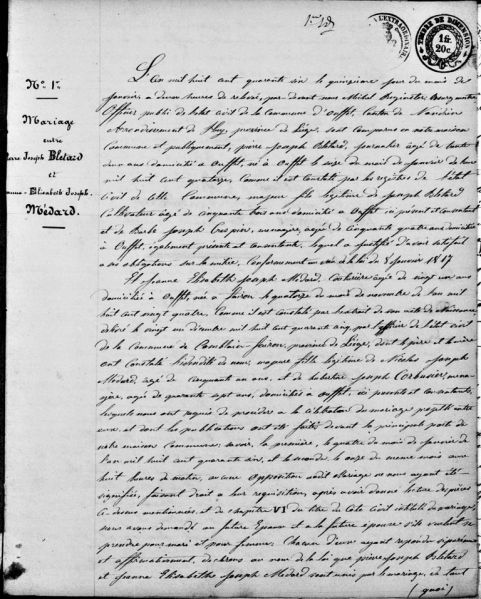 1 fr.
20 c.
TIMBRE DE DIMENSION
N.° 1.er
Mariage
entre
Pierre Joseph Blétard
et
Jeanne-Elisabeth Joseph
Médard.
L'an mil huit cent quarante six le quinzième jour du mois de
janvier à heures de relevé, par devant nous Michel
Officier public de l'état civil de la Commune d'Ouffet, Canton de Nandrin
Arrondissement de Huy, province de Liége, sont comparus en notre maison
Commune et publiquement, pierre joseph Blétard, journalier agé de trente
deux ans domicilié à Ouffet, né à Ouffet le seize du mois de janvier de l'an
mil huit cent quatorze, comme il est constaté par les registres de l'état
civil de cette Commune, majeur fils légitime de joseph Blétard
Cultivateur agé de cinquante trois ans domicilié à Ouffet ici présent et consentant
et de Barbe joseph ménagère, agée de cinquante quatre ans domiciliée
à Ouffet, également présente et consentante, lequel a justifié d'avoir satisfait
à ses obligations sur la milice, conformément à la loi du 8 janvier 1817
Et jeanne Elisabeth joseph Médard, Couturière agée de vingt un ans
domiciliée à Ouffet, née à le quatorze du mois de novembre de l'an mil
huit cent vingt quatre, comme il est constaté par l'extrait de son acte de naissance
délivré le vingt un mil huit cent quarante cinq par l'officier de l'état civil
de la Commune de Comblain province de Liége, dont le père et la mère
ont constaté l'identité de nom, majeure fille légitime de Nicolas joseph
Médard, agé de cinquante un ans, et de joseph Corbusier, ména-
gère, agée de quarante sept ans, domiciliés à Ouffet, ici présents et consentants,
lesquels nous ont requis de procéder à la célébration du mariage projeté entre
eux et dont les publications ont été faites devant la principale porte de
notre maison commune savoir, la première, le quatre du mois de janvier de
l'an mil huit cent quarante six, et la seconde le onze du même mois aux
huit heures du matin, aucune opposition audit Mariage ne nous ayant été
signifiée, faisant droit à leur réquisition, après avoir donné lecture des pièces
ci dessus mentionnées et du chapitre VI du titre du Code civil intitulé du mariage,
nous avons demandé au futur Epoux et à la future épouse s'ils veulent se
prendre pour mari et pour femme. Chacun d'eux ayant répondu séparément
et affirmativement, déclarons au nom de la loi que pierre joseph Blétard
et jeanne Elisabeth joseph Médard sont unis par le mariage, de tout
(quoi)